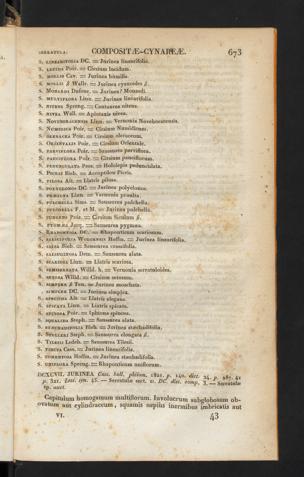 (SERRATULA) COMPOSITÆ-CYNAREÆ. 673
S. LINEARIFOLIA DC. = Jurinea linearifolia.
S. LUCIDA Poir. = Cirsium lucidum.
S. MOLLIS Cav. = Jurinea humilis.
S. MOLLIS β Wallr. = Jurinea cyanoides β.
S. MONARDI Dufour. = Jurinea? Monardi.
S. MULTIFLORA Linn. = Jurinea linearifolia.
S. NITENS Spreng. = Centaurea nitens.
S. NIVEA Wall. = Aplotaxis nivea.
S. NOVEBORACENSIS Linn. = Vernonia Noveboracensis.
S. NUMIDICA Poir. = Cirsium Numidicum.
S. OLERACEA Poir. = Cirsium oleraceum.
S. ORIENTALIS Poir. = Cirsium Orientale.
S. PARVIFLORA Poir. = Saussurea parviflora.
S. PAUCIFLORA Poir. = Cirsium pauciflorum.
S. PEDUNCULATA Poir. = Hololepis pedunculata.
S. PICRIS Bieb. = Acroptilon Picris.
S. PILOSA Ait. = Liatris pilosa.
S. POLYCLONOS DC. = Jurinea polyclonos.
S. PRÆALTA Linn. = Vernonia præalta.
S. PULCHELLA Sims. = Saussurea pulchella.
S. PULCHELLA F. et M. = Jurinea pulchella.
S. PUNGENS Poir. = Cirsium Siculum β.
S. PYGMÆA Jacq. = Saussurea pygmæa.
S. RHAPONTICA DC. = Rhaponticum scariosum.
S. SALICIFOLIA Hoffm. = Jurinea linearifolia.
S. SALSA Bieb. = Saussurea crassifolia.
S. SALSUGINOSA = Saussurea alata.
S. SCARIOSA Linn. = Liatris scariosa.
S. Willd. h. = Vernonia serratuloides.
S. SETOSA Willd. = Cirsium setosum.
S. SIMPLEX β Ten. = Jurinea moschata.
S. SIMPLEX DC. = Jurinea simplex.
S. SPECIOSA Ait. = Liatris elegans.
S. SPICATA Linn. = Liatris spicata.
S. SPINOSA Poir. = Iphiona spinosa.
S. SQUALIDA Steph. = Saussurea alata.
S. STÆCHADIFOLIA Bieb. = Jurinea stæchadifolia.
S. STELLERI Steph. = Saussurea elongata β.
S. TILESII Ledeb. = Saussurea Tilesii.
S. TINCTA Cass. = Jurinea linearifolia.
S. TOMENTOSA Hoffm. = Jurinea stæchadifolia.
S. UNIFLORA Spreng. = Rhaponticum uniflorum.
DCXCVII. JURINEA Cass. bull. philom. 1821. p. 140. dict. 24. p. 287. 41
p. 321. Less. syn. 45. — Serratulæ sect. 2. DC. diss. comp. 3. — Serratulæ
sp. auct.
Capitulum homogamum multiflorum. Involucrum subglobosum ob-
ovatum aut cylindraceum, squamis sæpiùs inermibus imbricatis aut
VI. 43